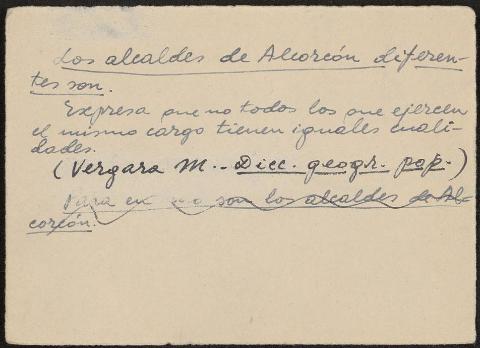 Los alcaldes de Alcorcón diferen-
tes son.
Expresa que no todos los que ejercen
el mismo cargo tienen iguales cuali-
dades.
(Vergara M.- Dicc. geogr. pop.)
Para en uno son los alcaldes de Al-
corcón.